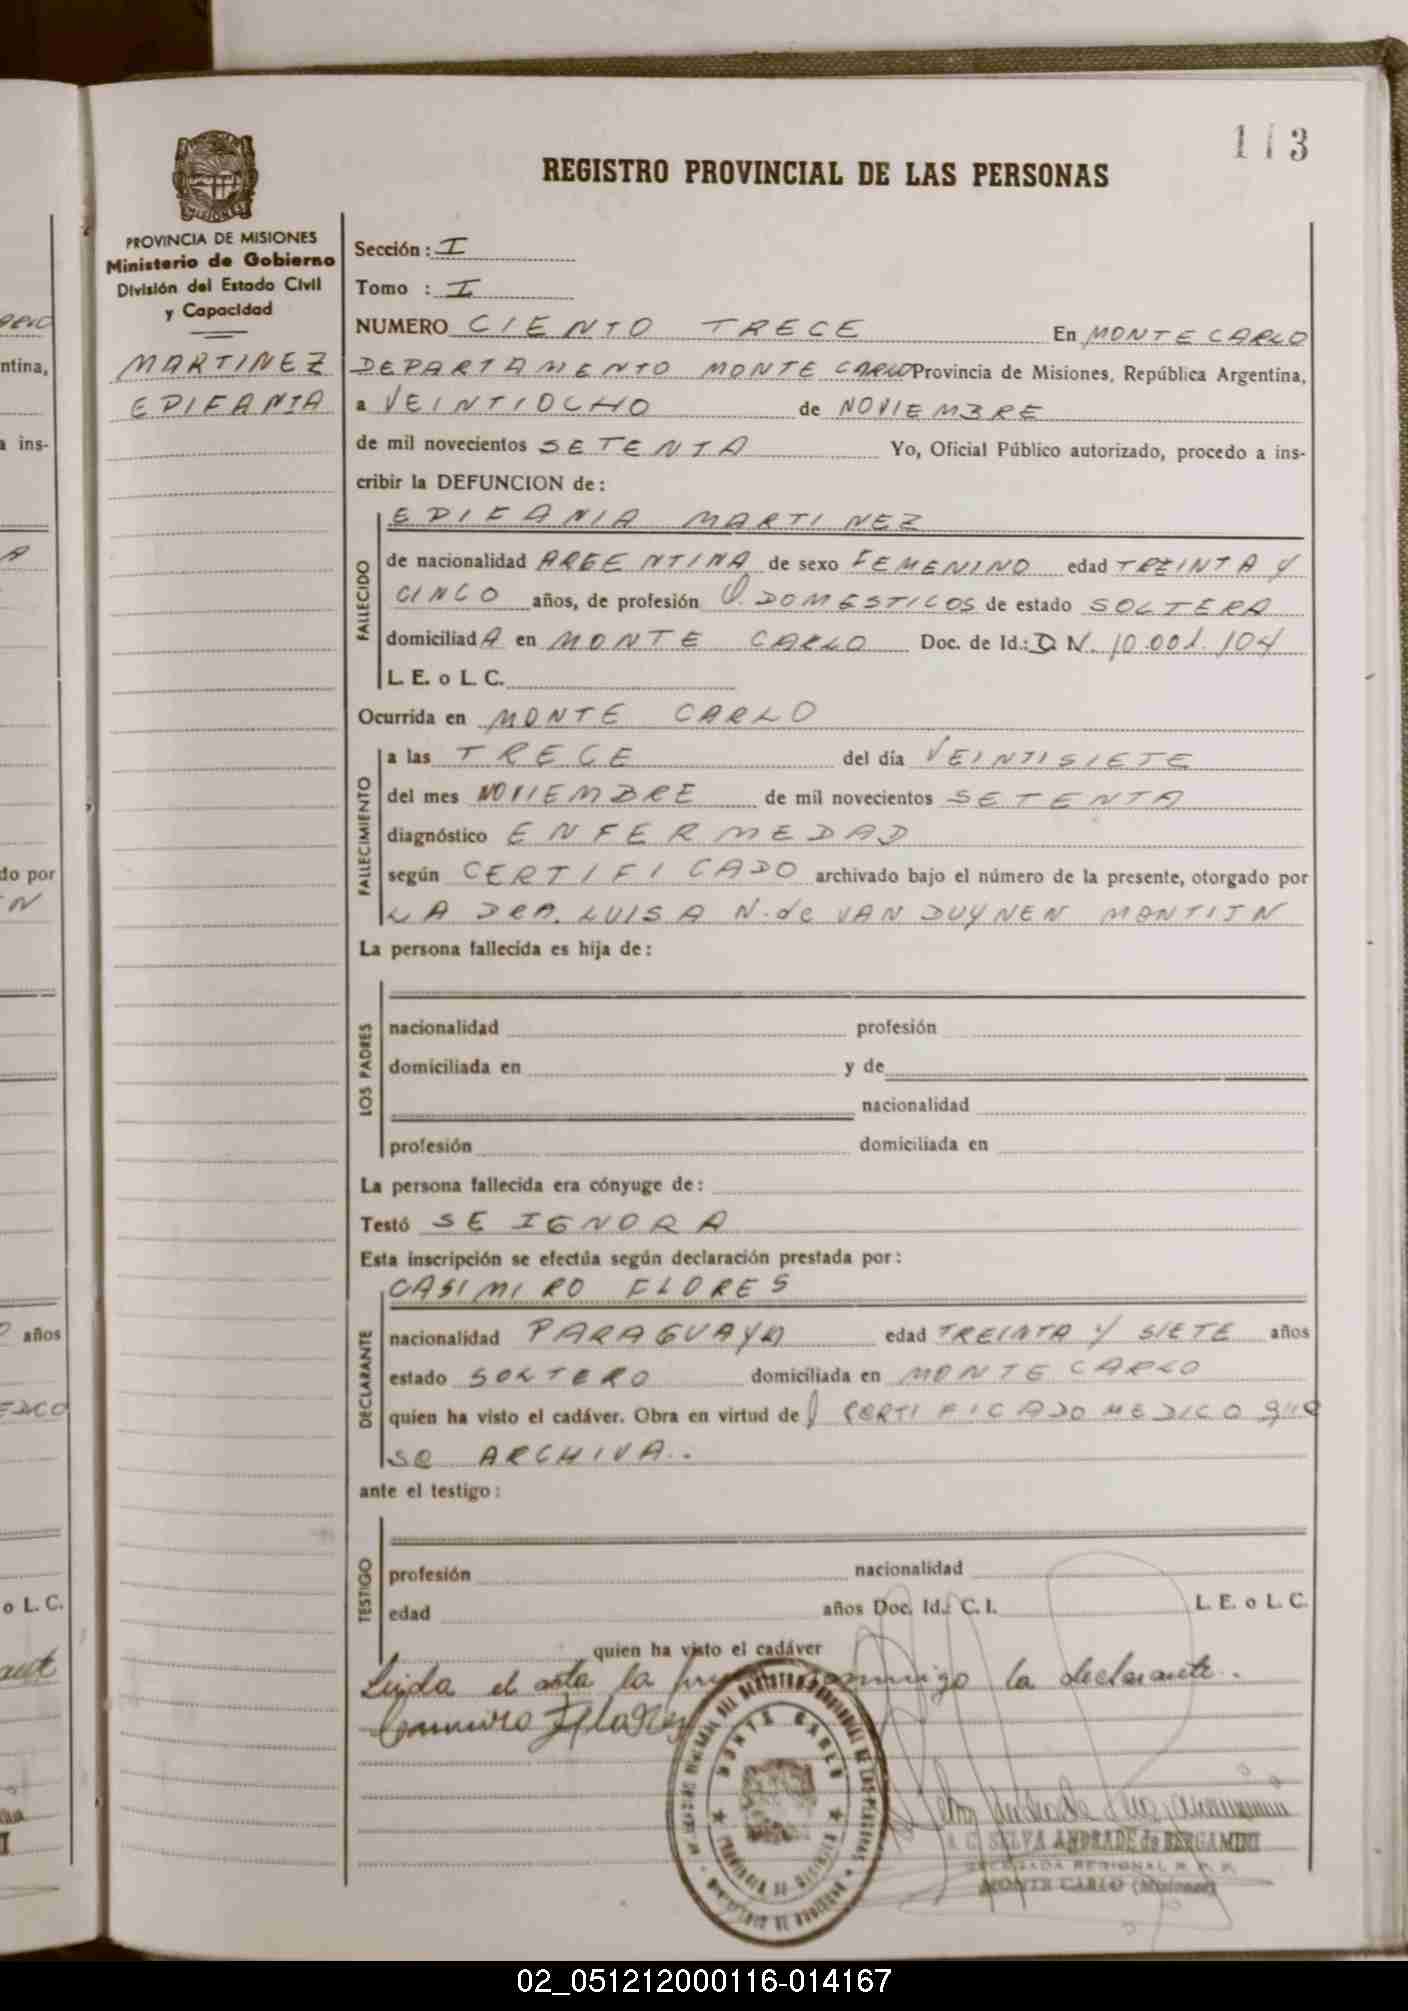 113
REGISTRO PROVINCIAL DE LAS PERSONAS
MISIONES
PROVINCIA DE MISIONES
Ministerio de Gobierno
División del Estado Civil
y Capacidad
MARTINEZ
EPIFANIA
Sección: I
Tomo : I
NUMERO CIENTO TRECE En MONTECARLO
DEPARTAMENTO MONTE CARLO Provincia de Misiones, República Argentina,
a VEINTIOCHO de NOVIEMBRE
de mil novecientos SETENTA Yo, Oficial Público autorizado, procedo a ins-
cribir la DEFUNCION de:
FALLECIDO
EPIFANIA MARTINEZ
de nacionalidad ARGENTINA de sexo FEMENINO edad TREINTA Y
CINCO años, de profesión Q. DOMESTICOS de estado SOLTERA
domiciliadA en MONTE CARLO Doc. de Id.: D N. 10.001.104
L. E. o L. C.
Ocurrida en MONTE CARLO
FALLECIMIENTO
a las TRECE del día VEINTISIETE
del mes NOVIEMBRE de mil novecientos SETENTA
diagnóstico ENFERMEDAD
según CERTIFICADO archivado bajo el número de la presente, otorgado por
LA DRA. LUISA N. de VAN DUYNEN MONTIJN
La persona fallecida es hija de:
LOS PADRES
nacionalidad profesión
domiciliada en y de
nacionalidad
profesión domiciliada en
La persona fallecida era cónyuge de:
Testó SE IGNORA
Esta inscripción se efectúa según declaración prestada por:
DECLARANTE
CASIMIRO FLORES
nacionalidad PARAGUAYA edad TREINTA Y SIETE años
estado SOLTERO domiciliada en MONTE CARLO
quien ha visto el cadáver. Obra en virtud de CERTIFICADO MEDICO que
se ARCHIVA.
ante el testigo:
TESTIGO
profesión nacionalidad
edad años Doc. Id.: C. I. L. E. o L. C.
quien ha visto el cadáver
Leida el acta la conmigo la declarante.
Casimiro Flores
MONTE CARLO
PROVINCIA DE MISIONES
A. C. SELVA ANDRADE de BERGAMINI
DELEGADA REGIONAL R. P. P.
MONTE CARLO (Misiones)
ntina,
a ins-
do por
años
o L. C.
02_051212000116-014167